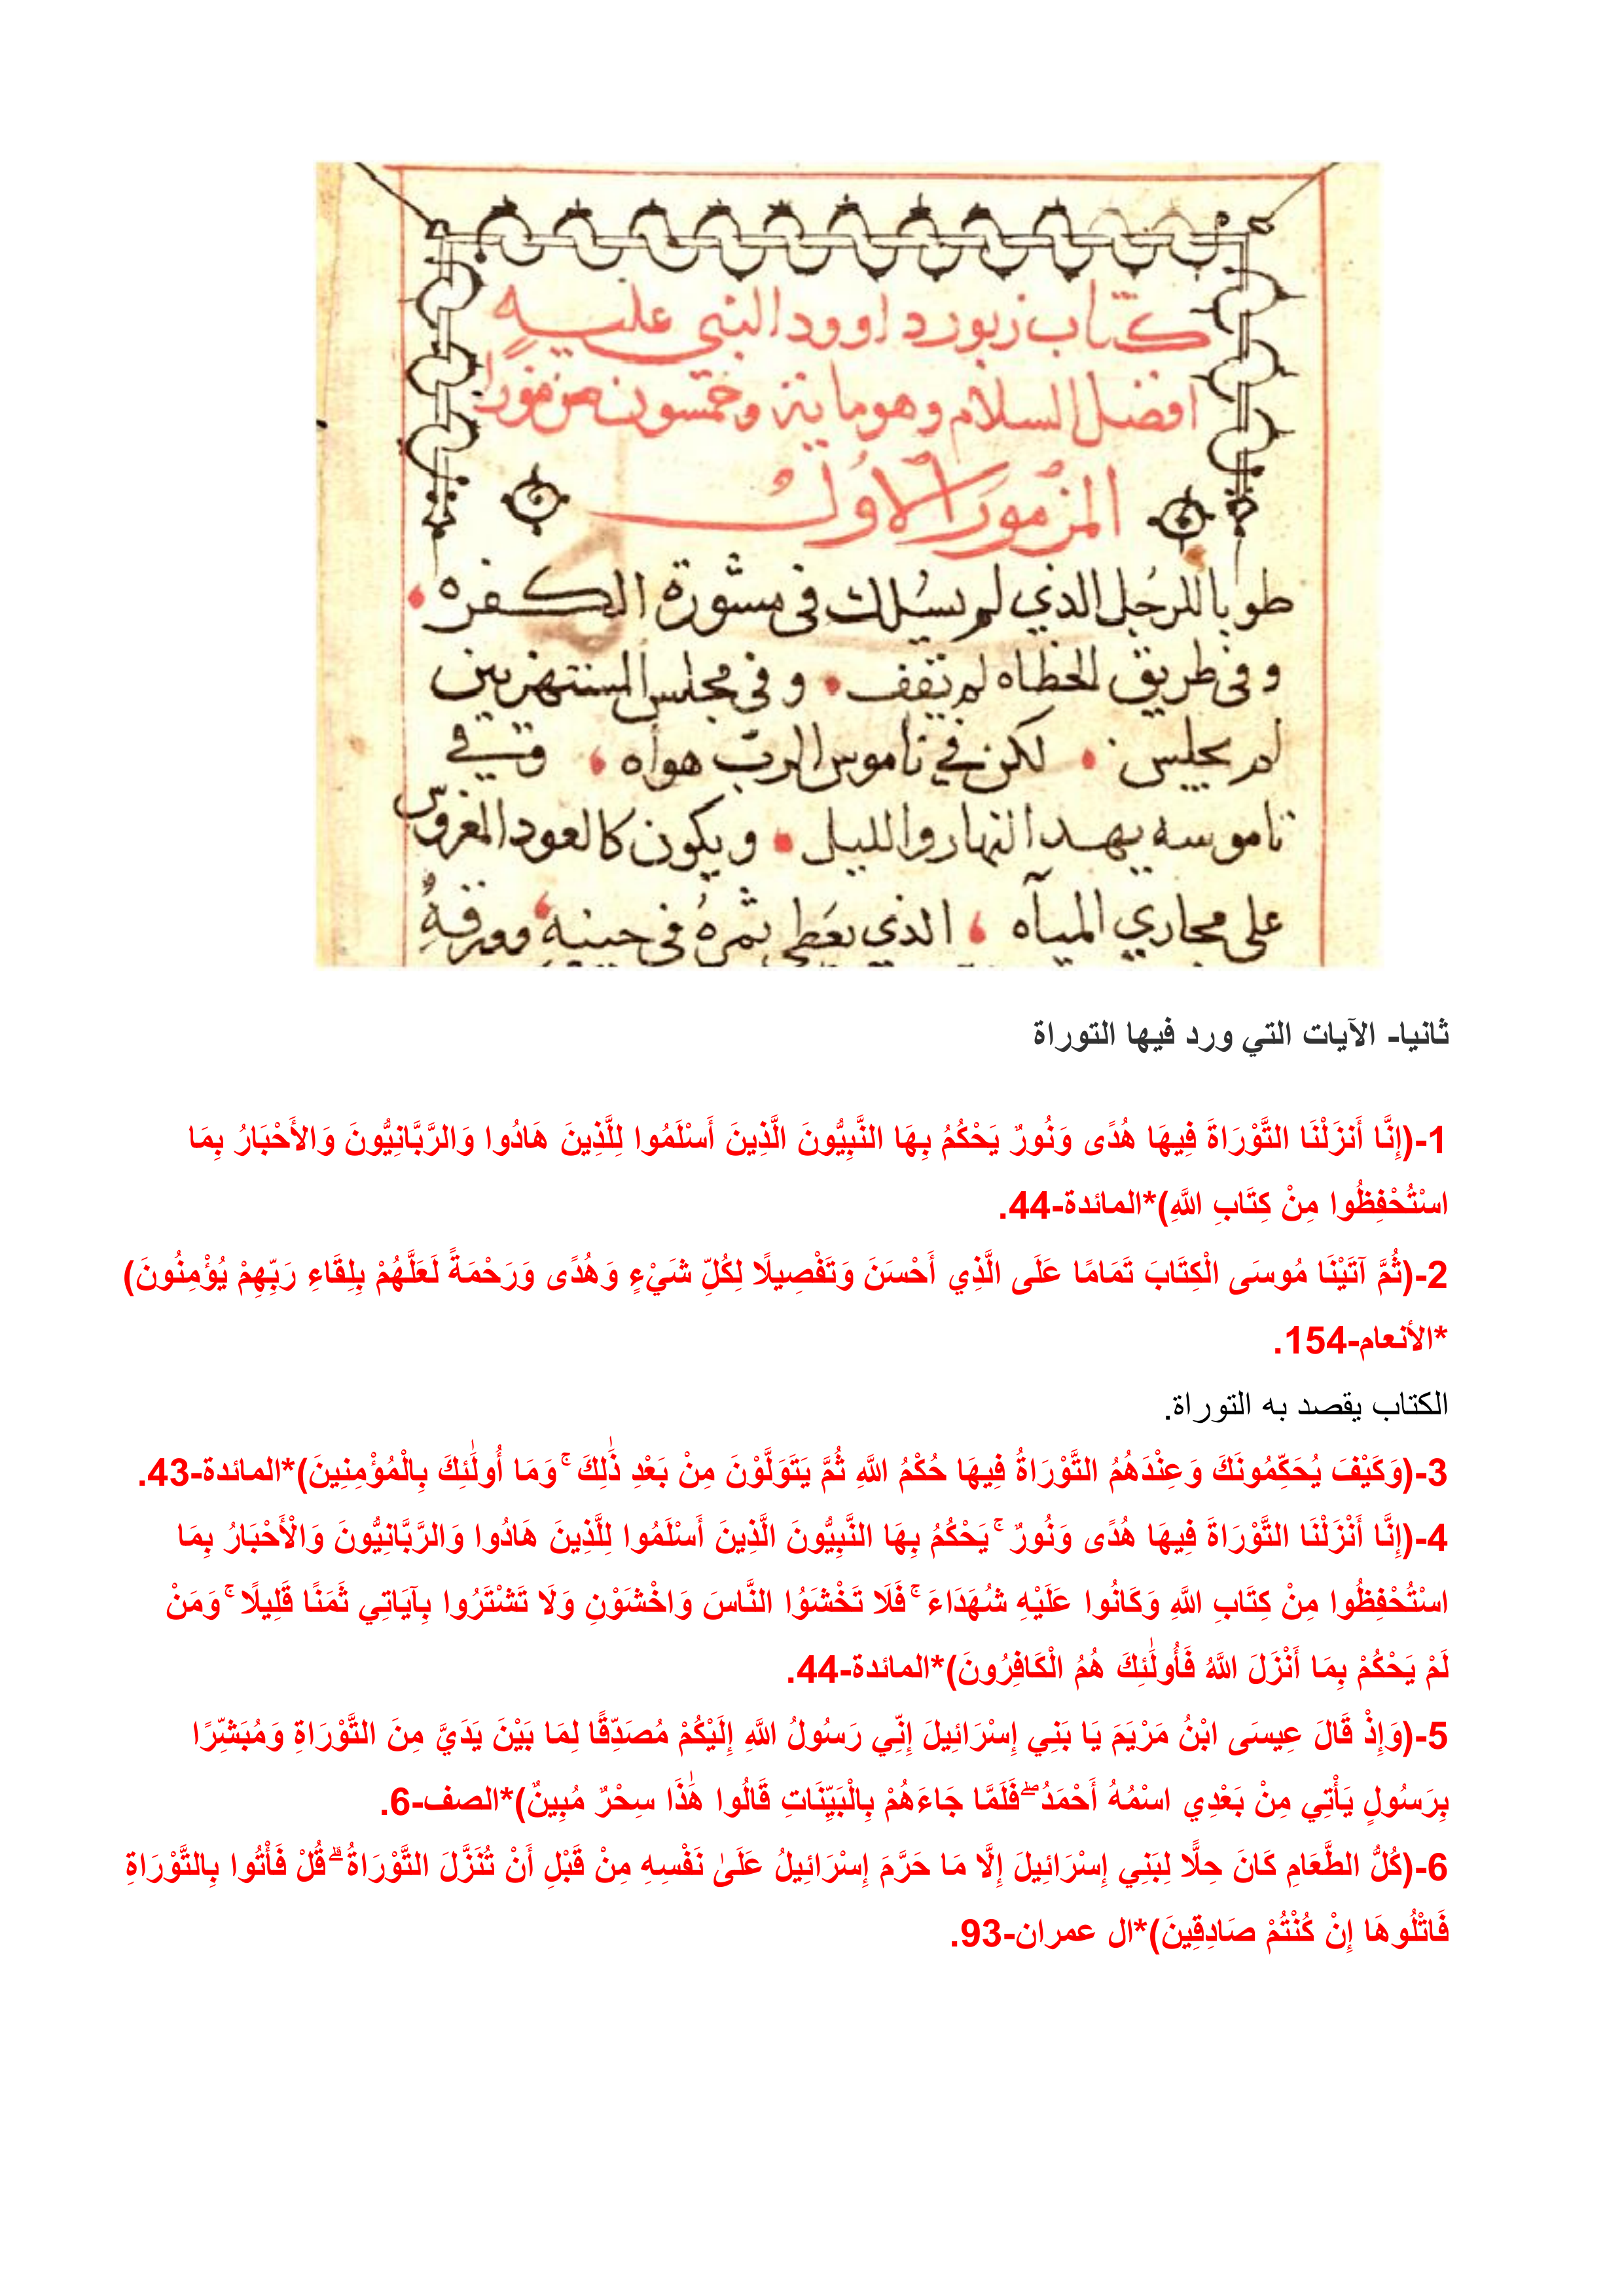 كتاب زبور داوود النبي عليه
افضل السلام وهو ماية وخمسون مزمورا
المزمور الاول
طوبا للرجل الذي لم يسلك فى مشورة الكفره
وفى طريق الخطاه لم يقف وفى مجلس المستهزيين
لم يجلس لكن في ناموس الرب هواه وفي
ناموسه يهد النهار والليل ويكون كالعود المغروس
على مجاري المياه الذي يعطى ثمره فى حينه وورقه
ثانيا- الآيات التي ورد فيها التوراة
1-(إِنَّا أَنزَلْنَا التَّوْرَاةَ فِيهَا هُدًى وَنُورٌ يَحْكُمُ بِهَا النَّبِيُّونَ الَّذِينَ أَسْلَمُوا لِلَّذِينَ هَادُوا وَالرَّبَّانِيُّونَ وَالأَحْبَارُ بِمَا
اسْتُحْفِظُوا مِنْ كِتَابِ اللَّهِ)*المائدة-44.
2-(ثُمَّ آتَيْنَا مُوسَى الْكِتَابَ تَمَامًا عَلَى الَّذِي أَحْسَنَ وَتَفْصِيلًا لِكُلِّ شَيْءٍ وَهُدًى وَرَحْمَةً لَعَلَّهُمْ بِلِقَاءِ رَبِّهِمْ يُؤْمِنُونَ)
*الأنعام-154.
الكتاب يقصد به التوراة.
3-(وَكَيْفَ يُحَكِّمُونَكَ وَعِنْدَهُمُ التَّوْرَاةُ فِيهَا حُكْمُ اللَّهِ ثُمَّ يَتَوَلَّوْنَ مِنْ بَعْدِ ذَٰلِكَ ۚ وَمَا أُولَٰئِكَ بِالْمُؤْمِنِينَ)*المائدة-43.
4-(إِنَّا أَنْزَلْنَا التَّوْرَاةَ فِيهَا هُدًى وَنُورٌ ۚ يَحْكُمُ بِهَا النَّبِيُّونَ الَّذِينَ أَسْلَمُوا لِلَّذِينَ هَادُوا وَالرَّبَّانِيُّونَ وَالْأَحْبَارُ بِمَا
اسْتُحْفِظُوا مِنْ كِتَابِ اللَّهِ وَكَانُوا عَلَيْهِ شُهَدَاءَ ۚ فَلَا تَخْشَوُا النَّاسَ وَاخْشَوْنِ وَلَا تَشْتَرُوا بِآيَاتِي ثَمَنًا قَلِيلًا ۚ وَمَنْ
لَمْ يَحْكُمْ بِمَا أَنْزَلَ اللَّهُ فَأُولَٰئِكَ هُمُ الْكَافِرُونَ)*المائدة-44.
5-(وَإِذْ قَالَ عِيسَى ابْنُ مَرْيَمَ يَا بَنِي إِسْرَائِيلَ إِنِّي رَسُولُ اللَّهِ إِلَيْكُمْ مُصَدِّقًا لِمَا بَيْنَ يَدَيَّ مِنَ التَّوْرَاةِ وَمُبَشِّرًا
بِرَسُولٍ يَأْتِي مِنْ بَعْدِي اسْمُهُ أَحْمَدُ ۖ فَلَمَّا جَاءَهُمْ بِالْبَيِّنَاتِ قَالُوا هَٰذَا سِحْرٌ مُبِينٌ)*الصف-6.
6-(كُلُّ الطَّعَامِ كَانَ حِلًّا لِبَنِي إِسْرَائِيلَ إِلَّا مَا حَرَّمَ إِسْرَائِيلُ عَلَىٰ نَفْسِهِ مِنْ قَبْلِ أَنْ تُنَزَّلَ التَّوْرَاةُ ۗ قُلْ فَأْتُوا بِالتَّوْرَاةِ
فَاتْلُوهَا إِنْ كُنْتُمْ صَادِقِينَ)*ال عمران-93.